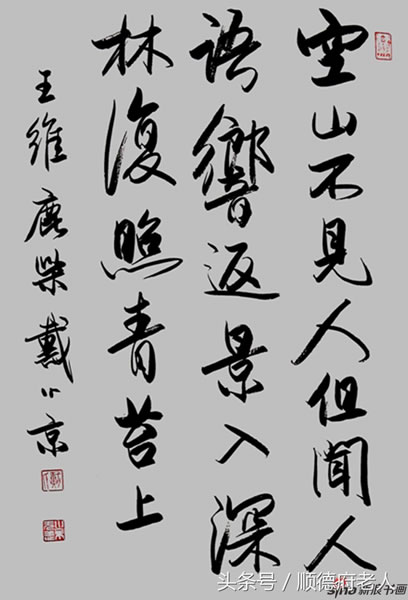 空山不見人但聞人
語響返景入深
林復照青苔上
王維鹿柴戴小京
头条号 / 顺德府老人
sina 新浪书画